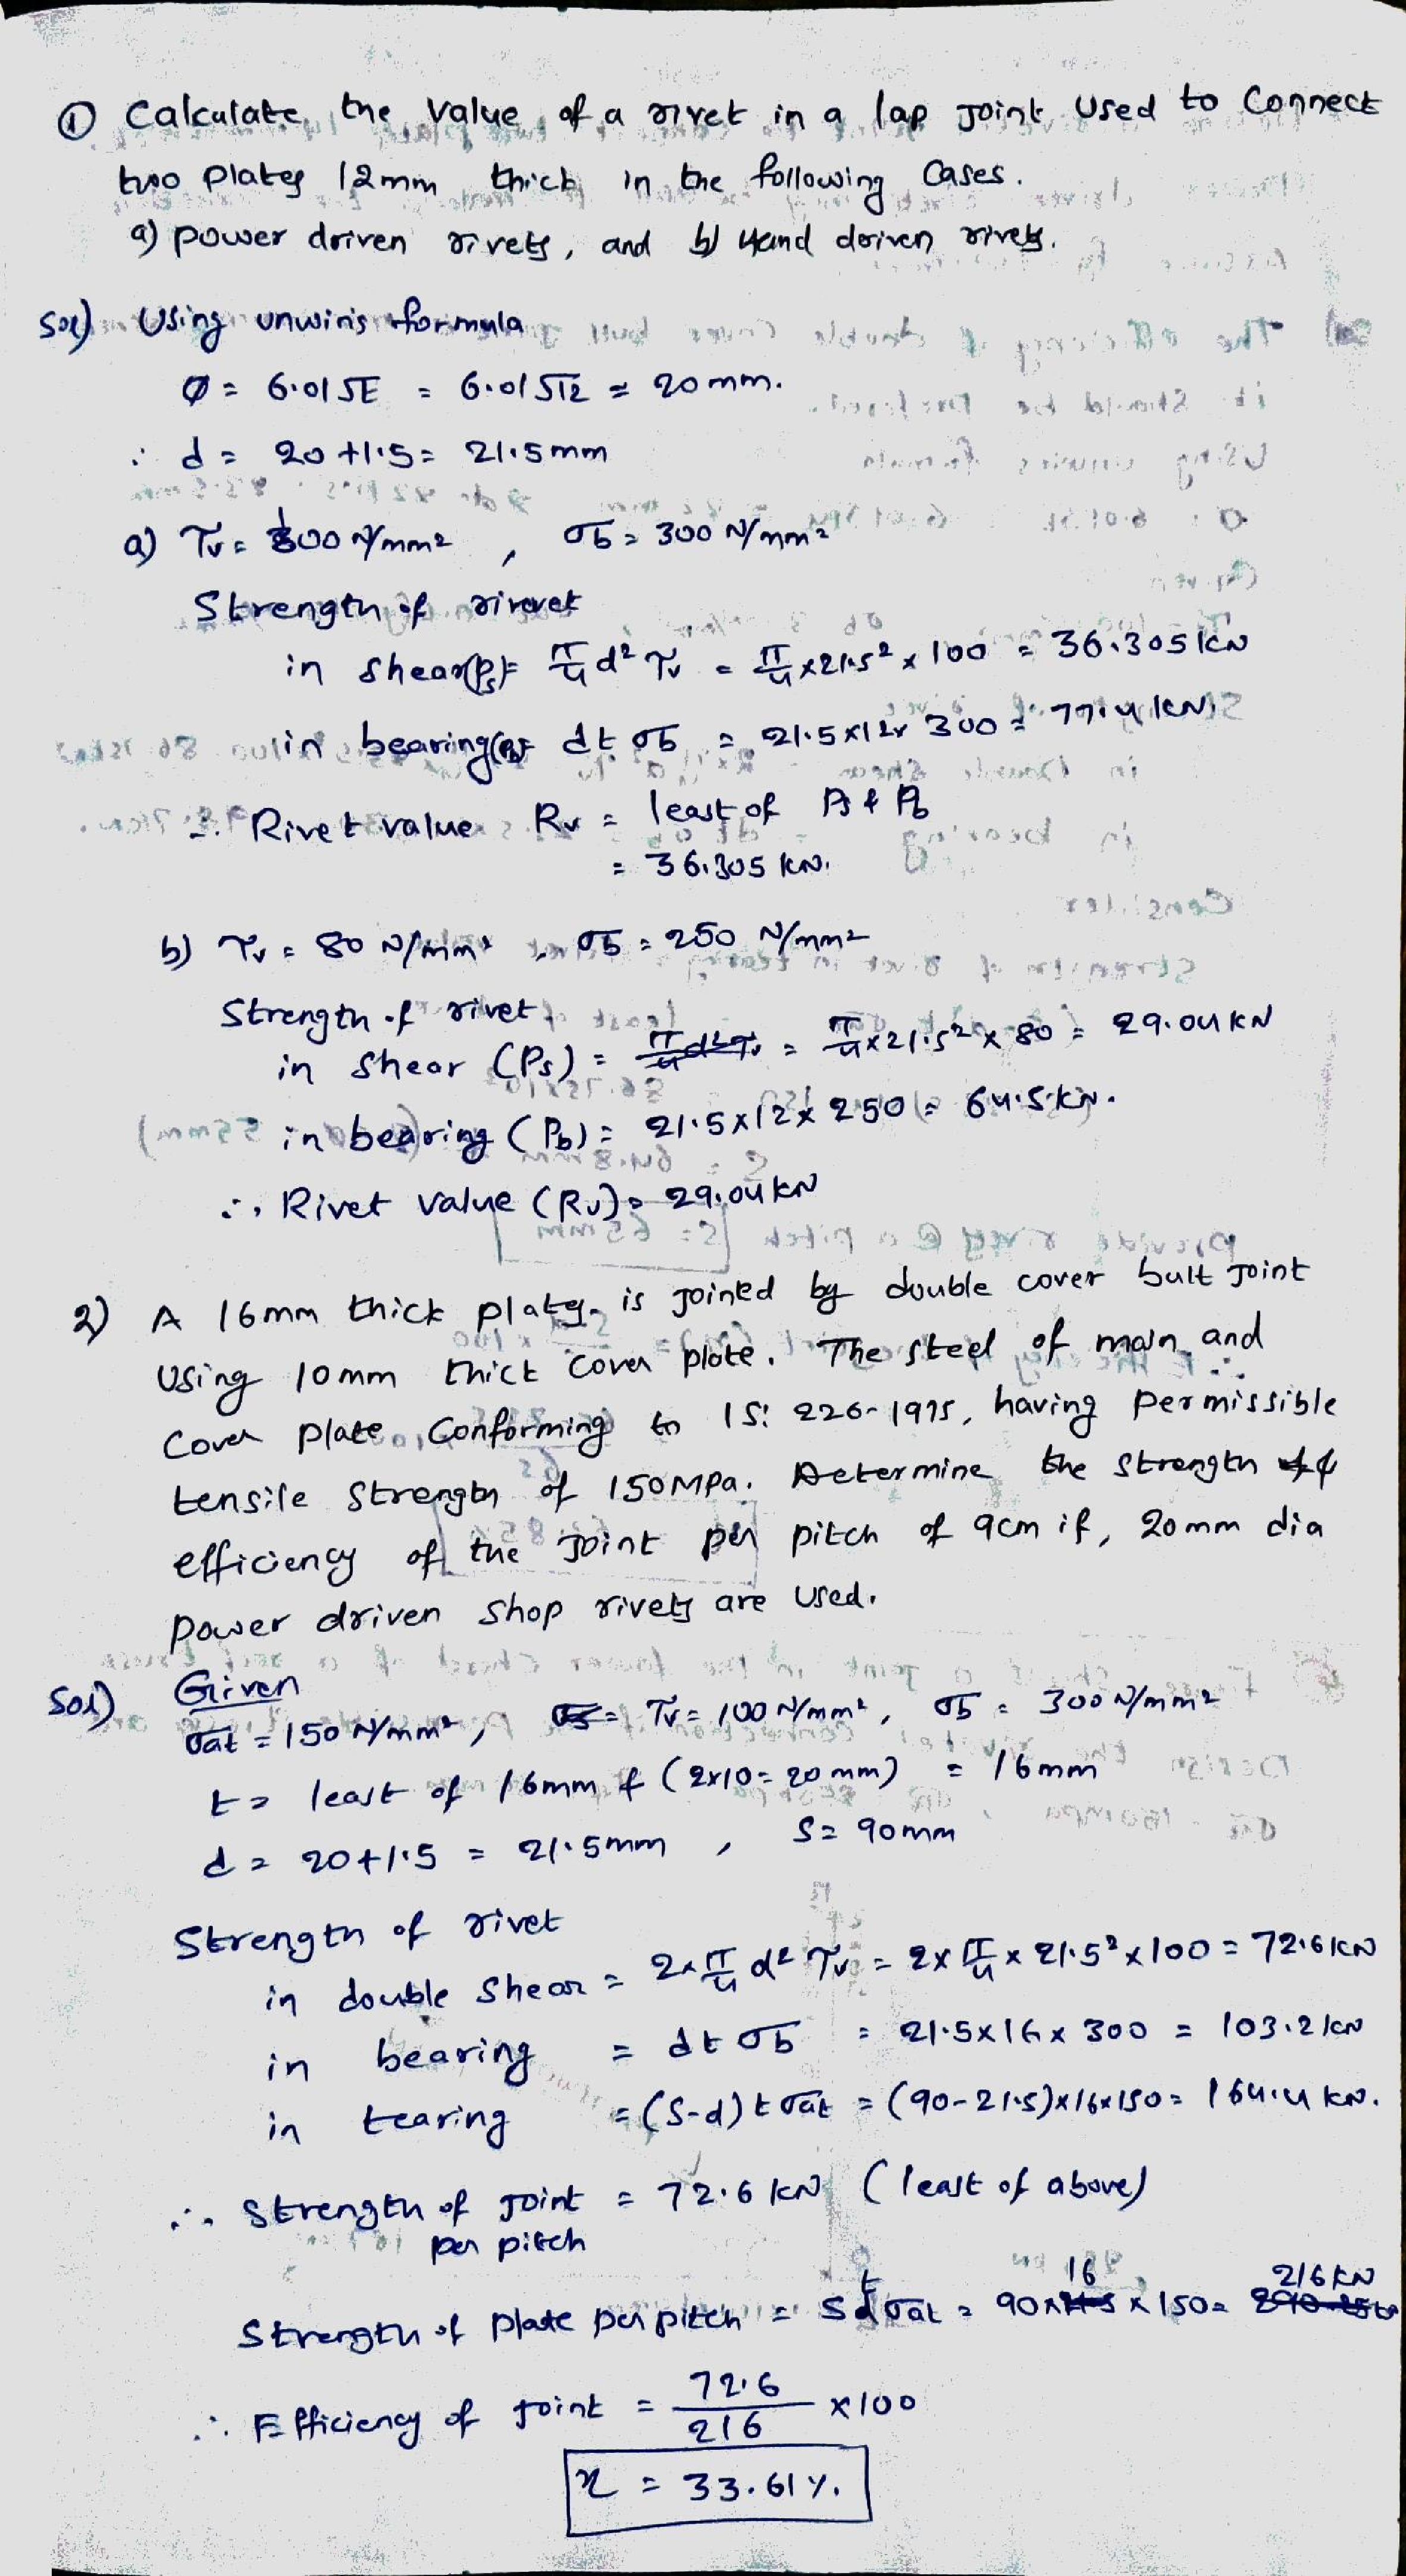 ① Calculate the value of a rivet in a lap joint used to connect
two plates 12mm thick in the following cases.
a) power driven rivets, and b) Hand driven rivets.
Sol) Using unwin's formula
Ø = 6.01√t = 6.01√12 = 20mm.
∴ d = 20+1.5 = 21.5mm
a) τv = 100 N/mm², σb = 300 N/mm²
Strength of rivet
in shear(Ps) = π/4 d² τv = π/4 x 21.5² x 100 = 36.305 kN
in bearing(Pb) = dt σb = 21.5x12x300 = 77.4 kN
∴ Rivet value Rv = least of Ps & Pb
= 36.305 kN.
b) τv = 80 N/mm², σb = 250 N/mm²
Strength of rivet
in shear (Ps) = π/4 d² τv = π/4 x 21.5² x 80 = 29.04 kN
in bearing (Pb) = 21.5x12x250 = 64.5 kN.
∴ Rivet value (Rv) = 29.04 kN
2) A 16mm thick plate is joined by double cover butt joint
using 10mm thick cover plate. The steel of main and
cover plate conforming to IS: 226-1975, having permissible
tensile strength of 150MPa. Determine the strength &
efficiency of the joint per pitch of 9cm if, 20mm dia
power driven shop rivets are used.
Sol) Given
σat = 150 N/mm², τv = 100 N/mm², σb = 300 N/mm²
t = least of 16mm & (2x10 = 20mm) = 16mm
d = 20+1.5 = 21.5mm, S = 90mm
Strength of rivet
in double shear = 2x π/4 d² τv = 2x π/4 x 21.5² x 100 = 72.6 kN
in bearing = dt σb = 21.5x16x300 = 103.2 kN
in tearing = (S-d) t σat = (90-21.5)x16x150 = 164.4 kN.
∴ Strength of joint = 72.6 kN (least of above)
per pitch
Strength of plate per pitch = S t σat = 90x16 x 150 = 216 kN
∴ Efficiency of joint = 72.6/216 x100
η = 33.61%.